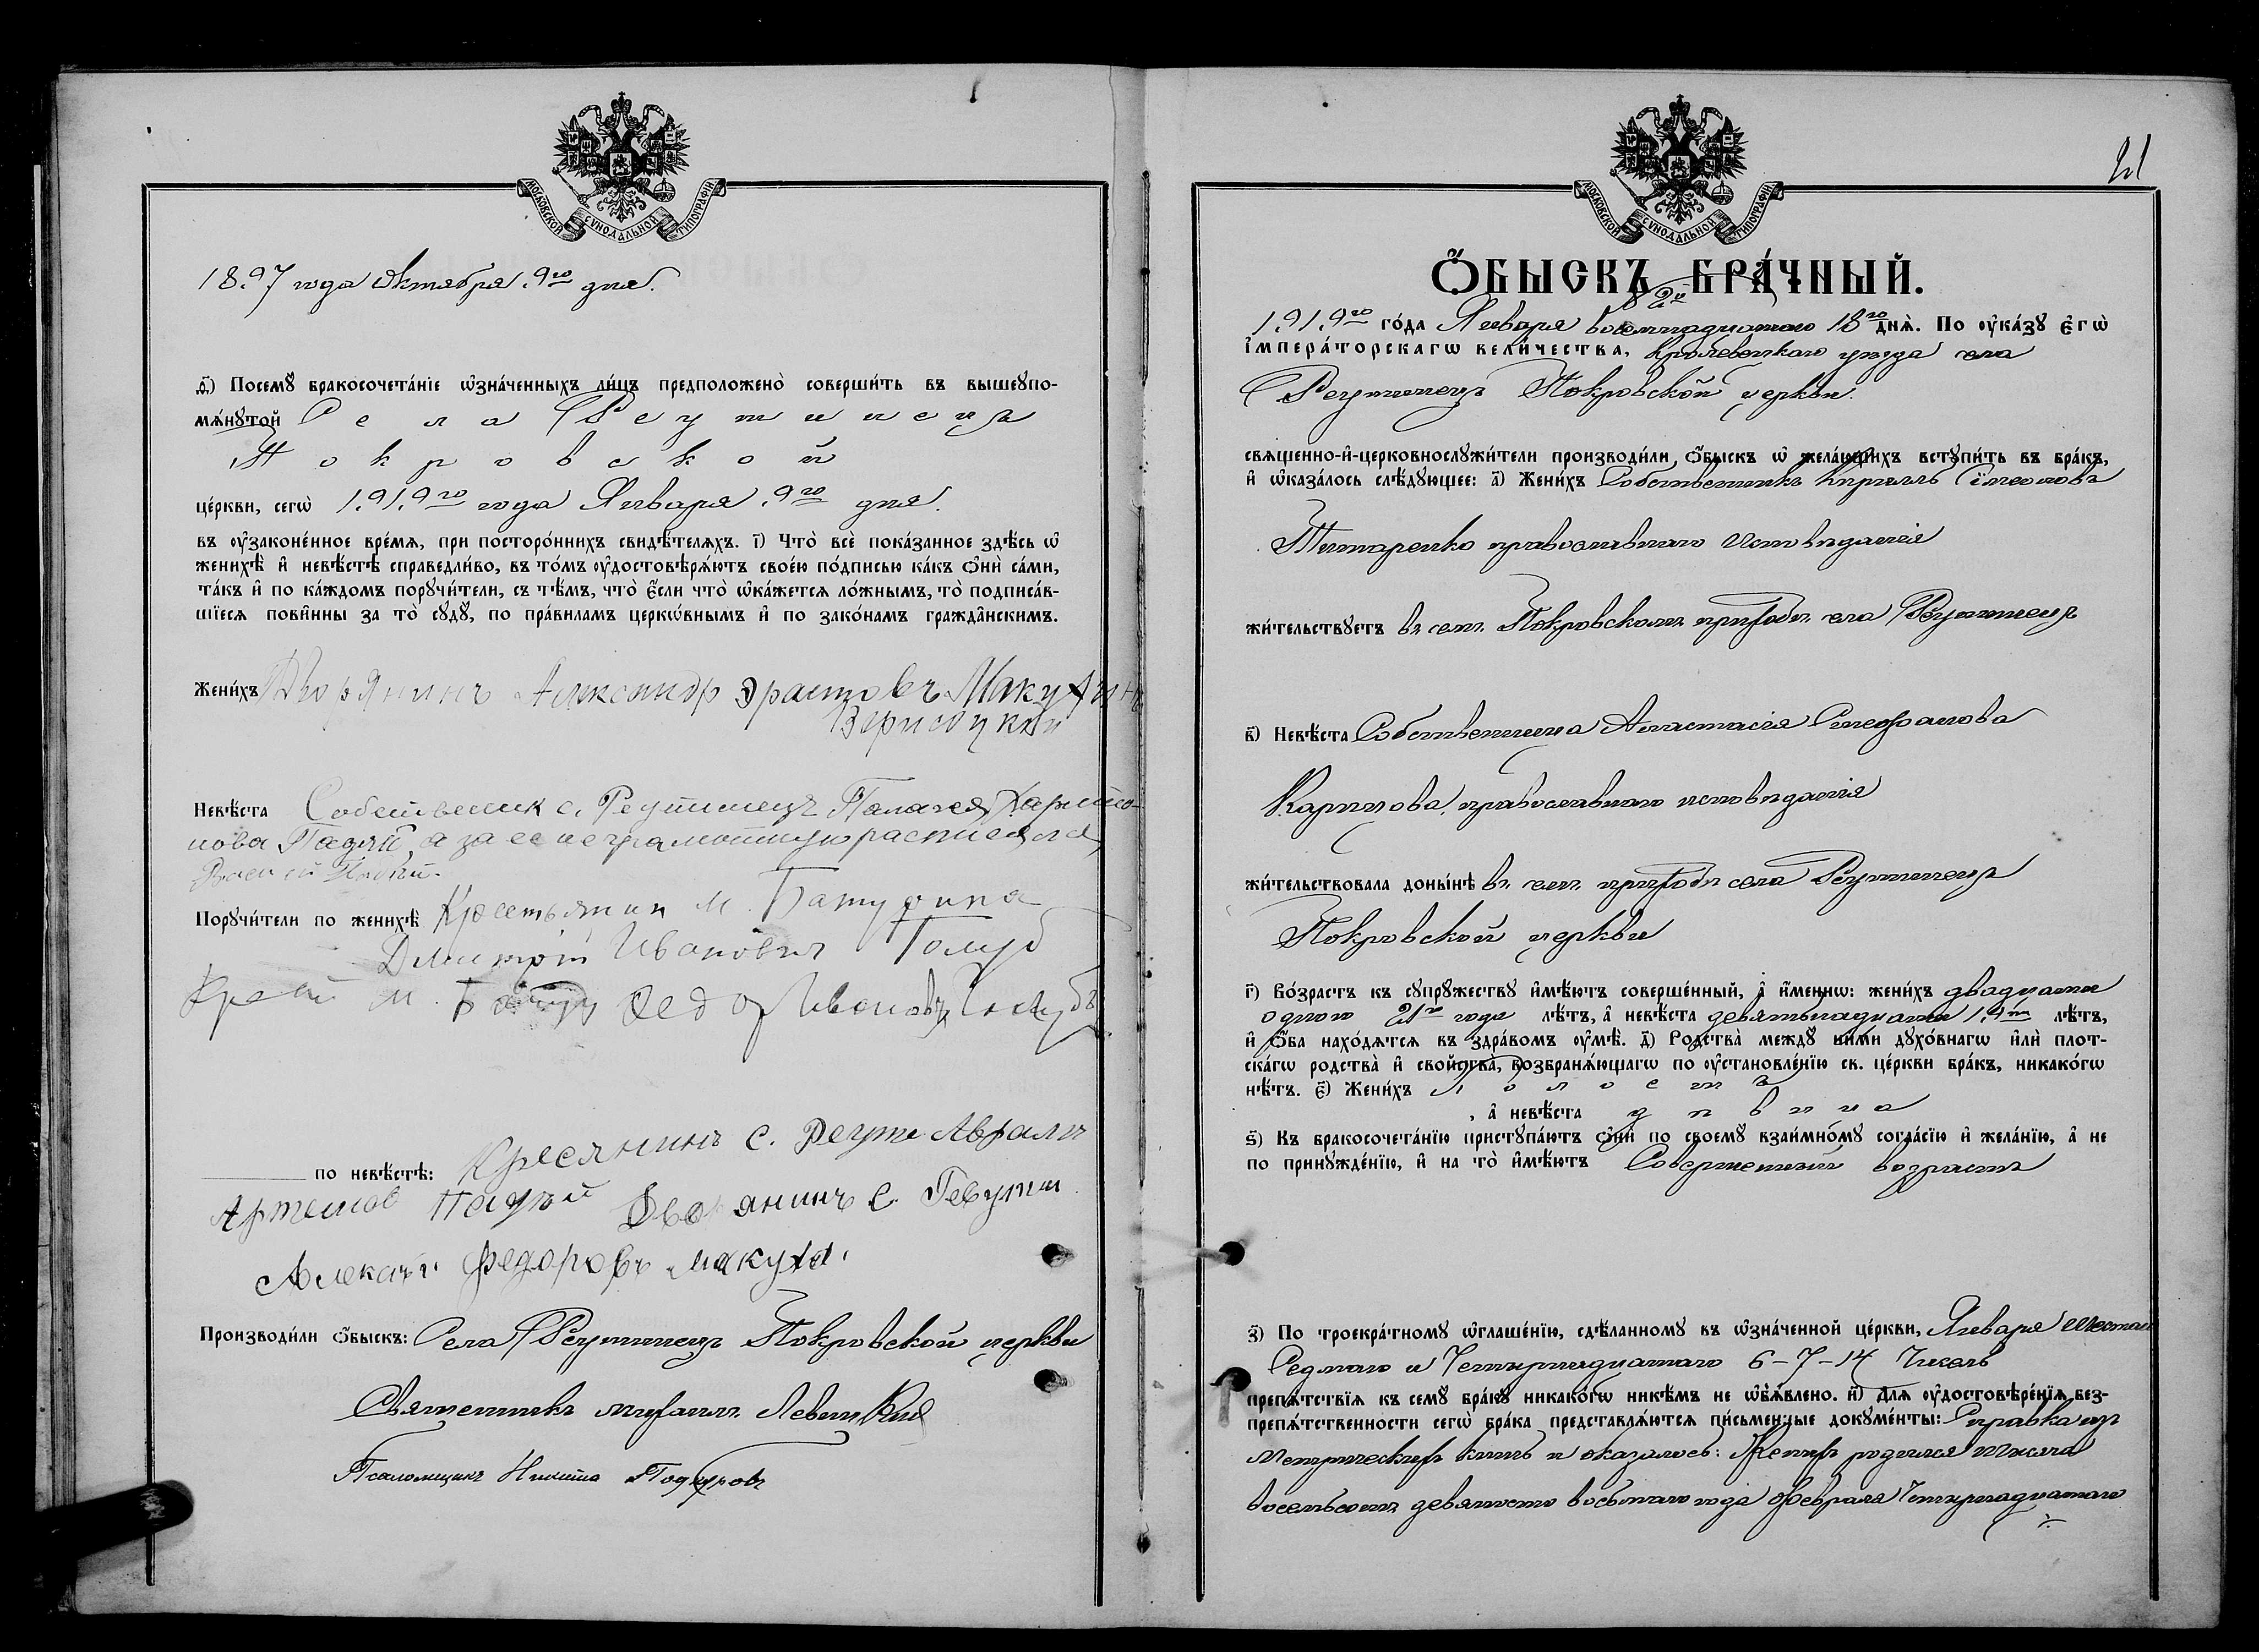 МОСКОВСКОЙ СѴНОДАЛЬНОЙ ТИПОГРАФІИ
1897 года Октября 9го дня.
д҃) Посемꙋ бракосочета́нїе ѡ҆зна́ченныхъ ли́цъ предположено̀ соверши́ть въ вышеꙋпо-
мѧ́нꙋтой Села Реутинецъ
Покровской
це́ркви, сегѡ̀ 1919го года Января 9го дня.
въ ᲂу҆законе́нное вре́мѧ, при посторо́ннихъ свидѣ́телѧхъ. і҃) Что̀ всѐ пока́занное здѣ́сь ѡ҆
женихѣ̀ и҆ невѣ́стѣ справедли́во, въ то́мъ ᲂу҆достовѣрѧ́ютъ свое́ю по́дписью ка́къ ѻ҆нѝ са́ми,
та́къ и҆ по ка́ждомъ порꙋчи́тели, съ тѣ́мъ, что̀ є҆́сли что̀ ѡ҆ка́жетсѧ ло́жнымъ, то̀ подписа́в-
шїесѧ пови́нны за то̀ сꙋдꙋ̀, по пра́виламъ церкѡ́внымъ и҆ по зако́намъ гражда́нскимъ.
Жени́хъ Дворянинъ Александр Эрастовъ Макухинъ
Невѣ́ста Собственик с. Реутинецъ Палагея Харито-
нова Падий, а за ее неграмотную расписался
Порꙋчи́тели по женихѣ̀ Крестьянин м. Батурина
Дмитрий Ивановичъ Голуб
м. Батур Федор Ивановъ Голубъ
по невѣ́стѣ: Кресянинъ с. Реути Аврамъ
Артемов Падий Дворянинъ с.
Федоровъ Макуха.
Производи́ли ѻ҆́быскъ: Села Реутинецъ Покровской церкви
Священникъ Михаилъ Левицкий
Псаломщикъ Никита
21
МОСКОВСКОЙ СѴНОДАЛЬНОЙ ТИПОГРАФІИ
Ѻ҆́БЫСКЪ БРА́ЧНЫЙ.
1919го го́да Января восемнадцатого 18го днѧ̀. По ᲂу҆ка́зꙋ є҆гѡ̀
і҆мпера́торскагѡ вели́чества, Кролевецкаго уезда села
Реутинецъ Покровской церкви.
свѧщенно-и҆-церковнослꙋжи́тели производи́ли ѻ҆́быскъ ѡ҆ жела́ющихъ встꙋпи́ть въ бра́къ,
и҆ ѡ҆каза́лось слѣ́дꙋющее: а҃) Жени́хъ Собственникъ Кириллъ Симеоновъ
Титаренко православнаго исповѣданія
жи́тельствꙋетъ въ семъ Покровскомъ приходѣ села Реутинецъ
в҃) Невѣ́ста Собственница Анастасія Стефанова
Карпова, православнаго исповѣданія
жи́тельствовала доны́нѣ въ семъ приходѣ села Реутинецъ
Покровской церкви
г҃) Во́зрастъ къ сꙋпрꙋ́жествꙋ и҆мѣ́ютъ соверше́нный, а҆ и҆́меннѡ: жени́хъ двадцати
одного 21го года лѣ́тъ, а҆ невѣ́ста девятьнадцати 19ти лѣ́тъ,
и҆ ѻ҆́ба нахо́дѧтсѧ въ здра́вомъ ᲂу҆мѣ̀. д҃) Родства̀ междꙋ̀ ни́ми дꙋхо́внагѡ и҆лѝ плот-
ска́гѡ родства̀ и҆ свойства̀, возбранѧ́ющагѡ по ᲂу҆становле́нїю св. це́ркви бра́къ, никако́гѡ
нѣ́тъ. є҃) Жени́хъ холостъ
, а҆ невѣ́ста дѣвица
ѕ҃) Къ бракосочета́нїю пристꙋпа́ютъ ѻ҆нѝ по своемꙋ̀ взаи́мномꙋ согла́сїю и҆ жела́нїю, а҆ не
по принꙋжде́нїю, и҆ на то̀ и҆мѣ́ютъ Совершенный возрастъ
з҃) По троекра́тномꙋ ѡ҆глаше́нїю, сдѣ́ланномꙋ въ ѡ҆зна́ченной це́ркви, Января шестаго
Седмаго и Четырнадцатаго 6-7-14 Чиселъ
препѧ́тствїѧ къ семꙋ̀ бра́кꙋ никако́гѡ никѣ́мъ не ѡ҆б̾ѧ́влено. и҃) Длѧ ᲂу҆достовѣре́нїѧ без-
препѧ́тственности сегѡ̀ бра́ка представлѧ́ютсѧ пи́сьменные докꙋме́нты: Справка изъ
Метрическихъ книгъ и оказалось: Женихъ родился тысяча
восемьсотъ девяносто восьмаго года Февраля Четырнадцатаго